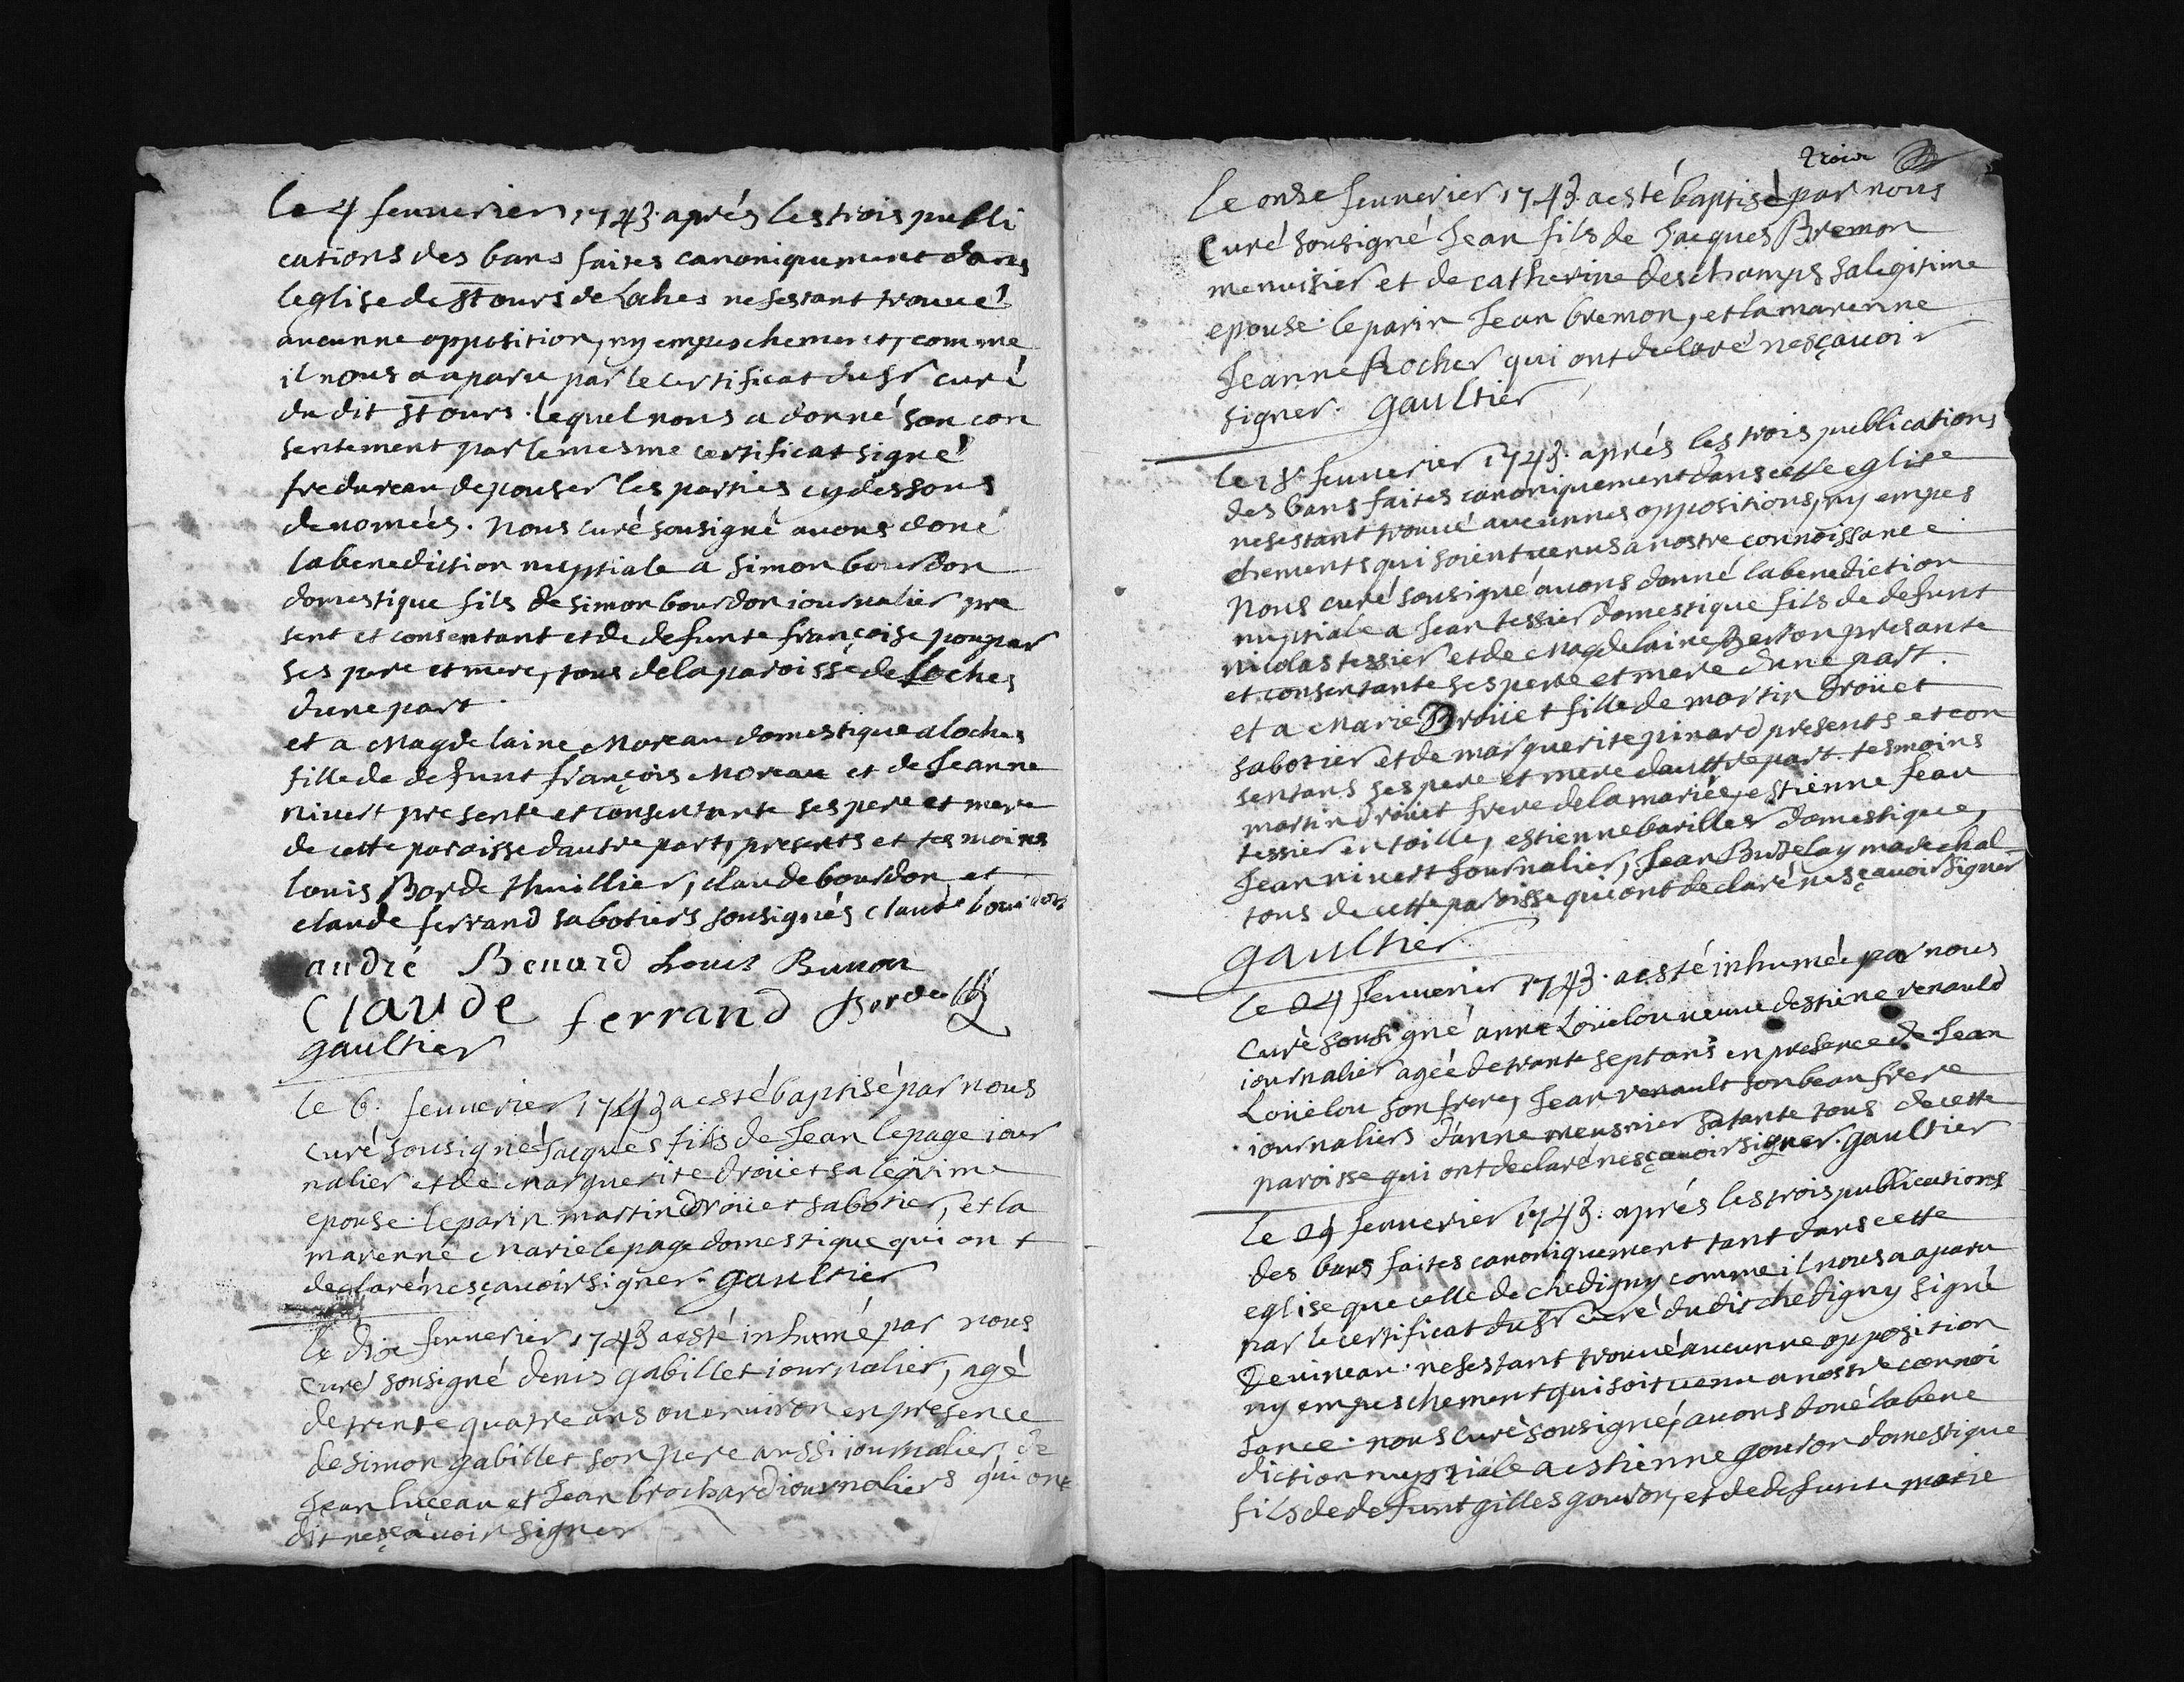 le 4 feuuerier 1743. aprés les trois publi
cations des bans faites canoniquement dans
leglise de St ours de Loches ne sestant trouué
aucunne opposition, ny empeschement, comme
il nous a aparu par le certificat du Sr curé
du dit St ours. lequel nous a donné son con
sentement par le mesme certificat signé
fredureau depouser les parties cy dessous
denomées. Nous curé sousigné auons doné
la benediction nuptiale a Simon bourdon
domestique fils de Simon bourdon iournalier pre
sent et consentant et de defunte françoise poupar
ses pere et mere, tous de la paroisse de Loches
dune part.
et a Magdelaine Moreau domestique a loches
fille de defunt françois Moreau et de Jeanne
niuert presente et consentante ses pere et mere
de cette paroisse dautre part, presents et tesmoins
louis Borde thuillier, claude bourdon et
claude ferrand sabotiers sousignés claude bourdon
andré Benard Louis Bunon
Claude ferrand Borde
gaultier
le 6. feuuerier 1743 a esté baptisé par nous
curé sousigné Jacques fils de Jean lepage iour
nalier et de Marguerite droüet sa legitime
epouse. le parin martin Droüet sabotier, et la
marenne Marie lepage domestique qui ont
declaré ne sçauoir signer. gaultier
le dix feuuerier 1743 a esté inhumé par nous
curé sousigné denis gabillet iournalier, agé
de trente quatre ans ou enuiron en presence
de Simon gabillet son pere aussi iournalier, de
Jean luceau et Jean brochard iournaliers qui ont
dit ne sçauoir signer
trois
le onse feuuerier 1743. a esté baptisé par nous
Curé sousigné Jean fils de Jacques Bremon
menuisier et de catherine deschamps sa legitime
epouse. le parin Jean bremon, et la marenne
Jeanne Rocher qui ont declaré ne sçauoir
signer. gaultier
le feuuerier 1743. aprés les trois publications
des bans faites canoniquement dans cette eglise
ne sestant trouué aucunnes oppositions, ny empes
chements qui soient uenus a nostre connoissance
Nous curé sousigné auons donné la benediction
nuptiale a Jean tessier domestique fils de defunt
nicolas tessier et de Magdelaine Berton presante
et consentante ses pere et mere dune part.
et a Marie Droüet fille de martin droüet
sabotier et de marguerite pinard presents et con
sentans ses pere et mere dauttre part. tesmoins
martin drouet frere de la mariée, estienne Jean
tessier en toille, estienne bariller domestique,
Jean niuert Journalier, Jean Buzelay marechal
tous de cette paroisse qui ont declaré ne sçauoir signer
gaultier
le 24 feuuerier 1743. a esté inhumée par nous
Curé sousigné anne Loüelou ueuue destiene renauld
iournalier agée de trante sept ans en presence de Jean
Loüelou son frere, Jean renault son beau frere
iournaliers danne meusnier sa tante tous de cette
paroisse qui ont declaré ne sçauoir signer. gaultier
le feuuerier 1743. aprés les trois publications
des bans faites canoniquement tant dans cette
eglise que celle de chedigny comme il nous a aparu
par le certificat du Sr curé du dit chedigny signé
Deuineau. ne sestant trouué aucunne opposition
ny empeschement qui soit uenu a nostre connoi
sance. nous curé sousigné, auons doné la bene
diction nuptiale a estienne gouron domestique
fils de defunt gilles gouron, et de defunte marie